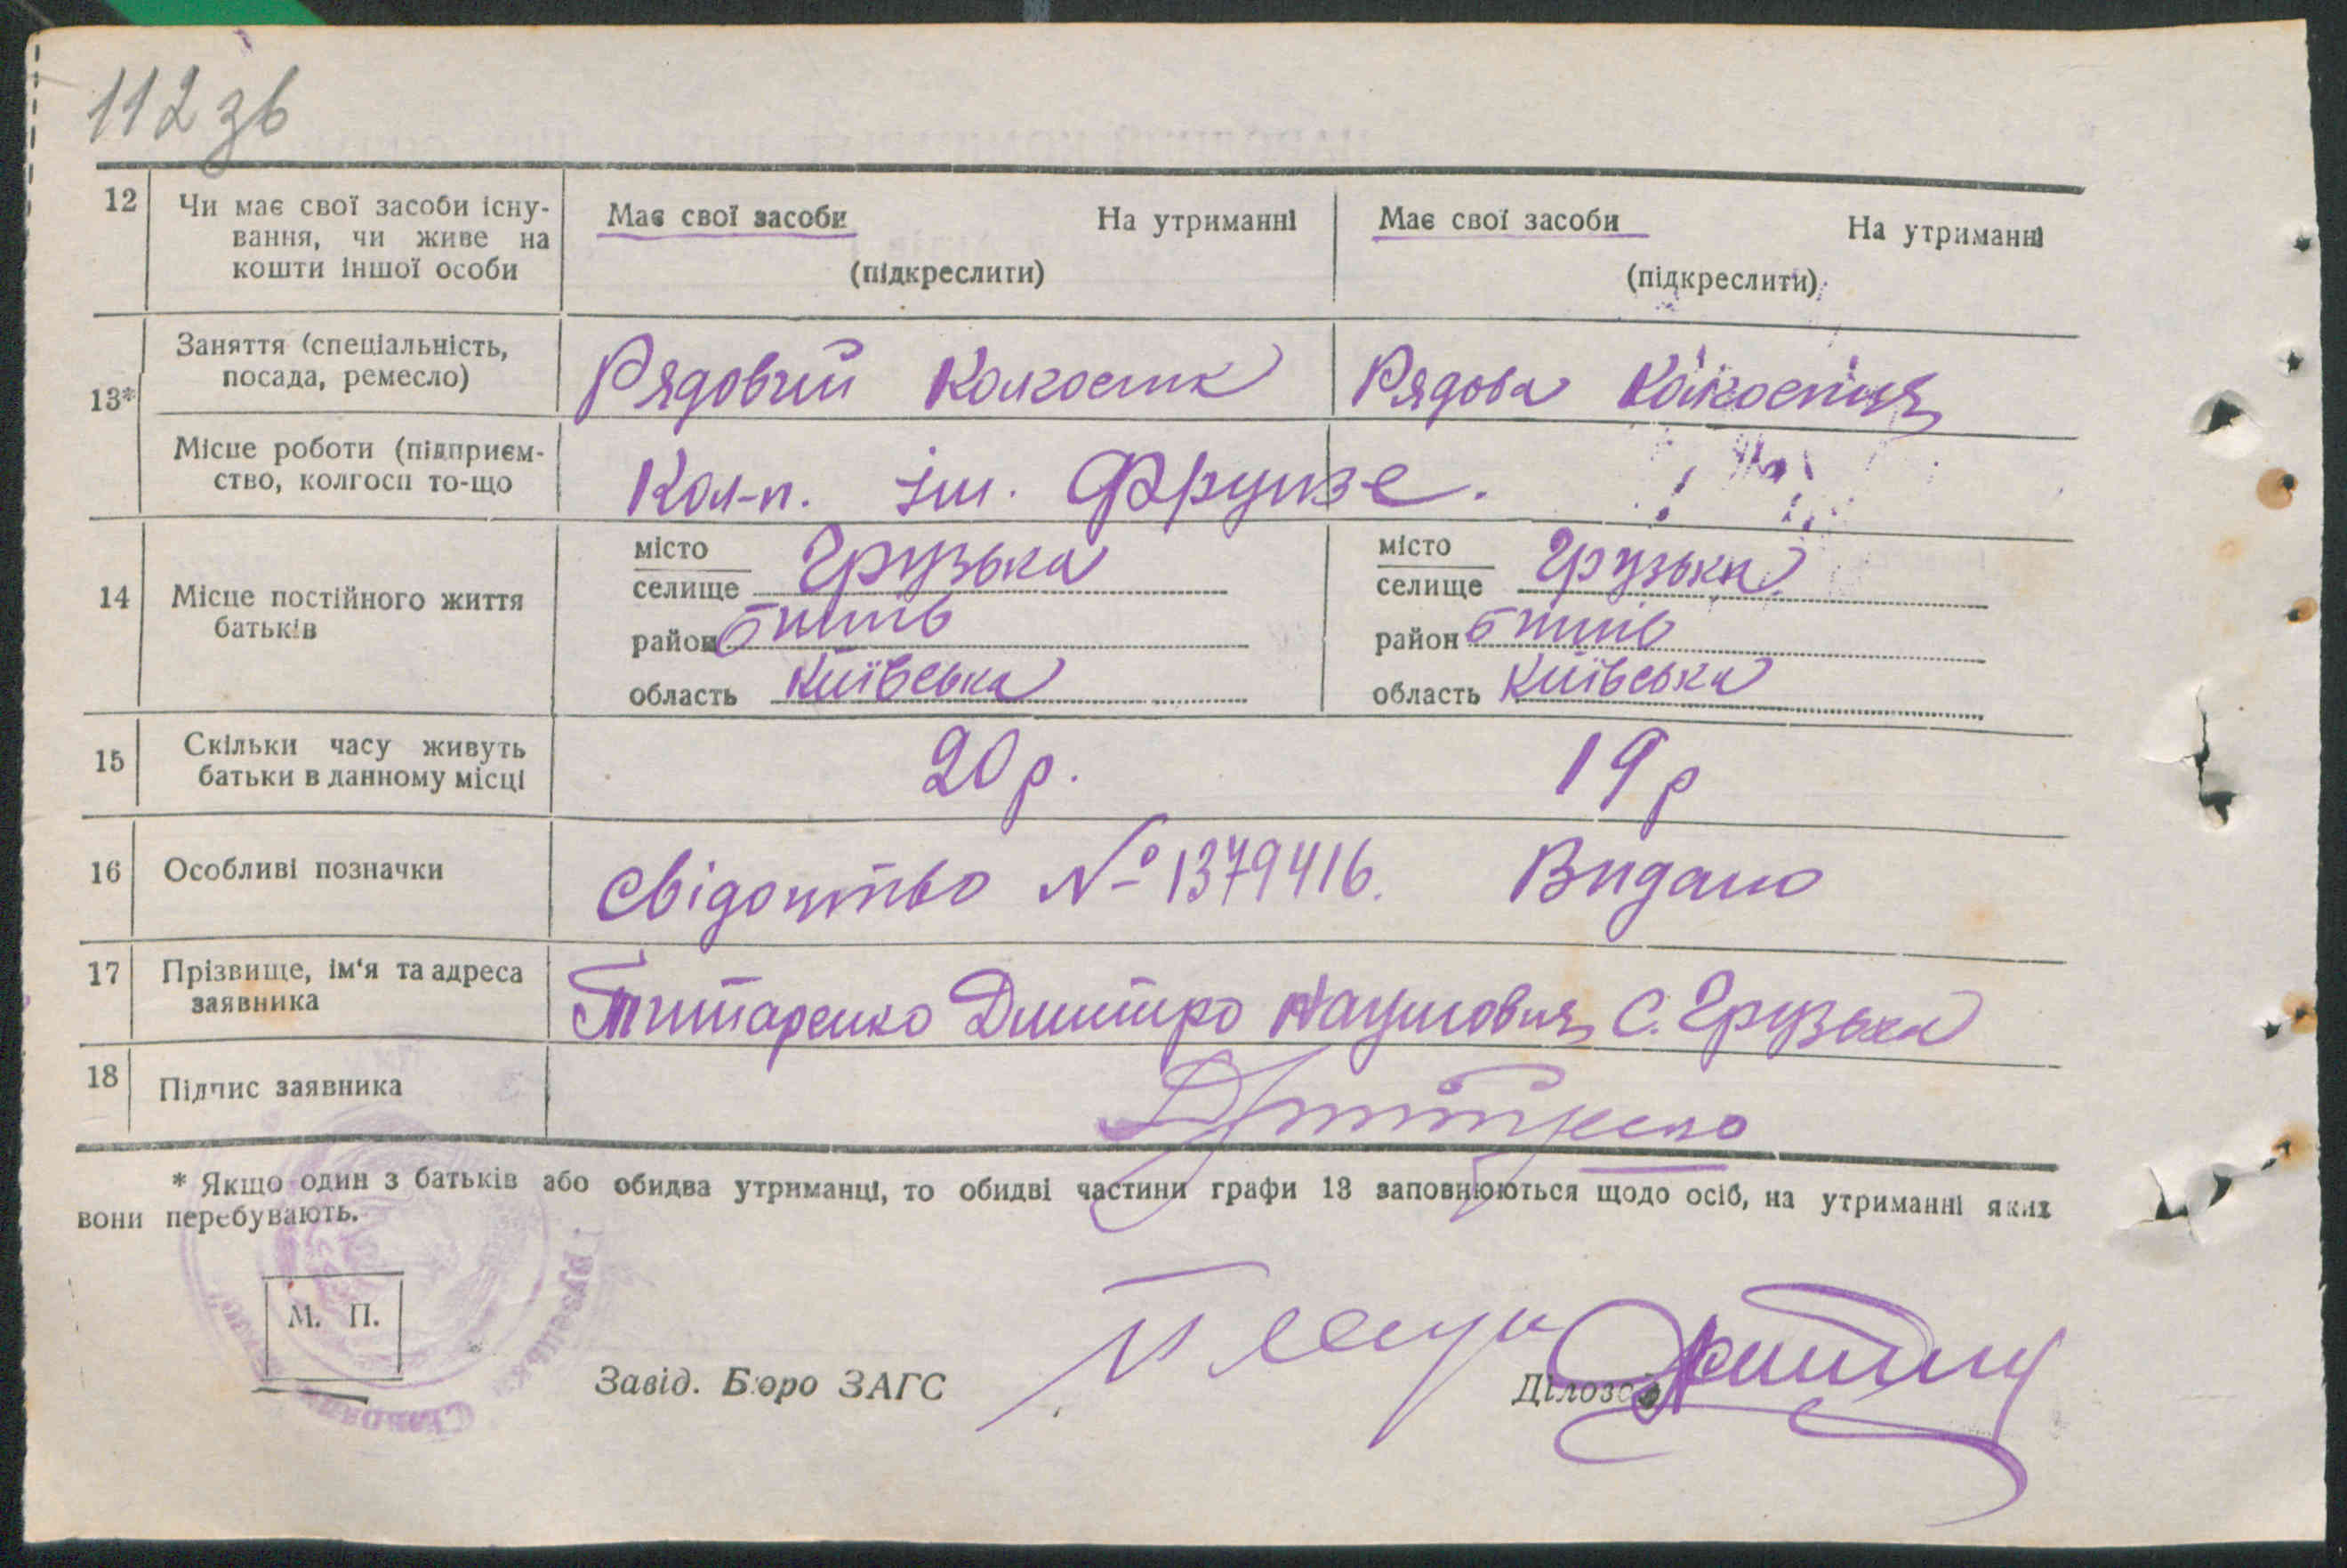 112 зв
12 Чи має свої засоби існу-
вання, чи живе на
кошти іншої особи
Має свої засоби На утриманні
(підкреслити)
Має свої засоби На утриманні
(підкреслити)
13*
Заняття (спеціальність,
посада, ремесло)
Рядовий Колгоспник Рядова
Місце роботи (підприєм-
ство, колгосп то-що
Кол-п. ім. Фрунзе.
14 Місце постійного життя
батьків
місто
селище Грузька
район
область Київська
місто
селище Грузька
район
область Київська
15 Скільки часу живуть
батьки в данному місці
20 р. 19 р
16 Особливі позначки
Свідоцтво № 1379416. Видано
17 Прізвище, ім'я та адреса
заявника
Титаренко Дмитро Наумович С. Грузька
18 Підпис заявника
* Якщо один з батьків або обидва утриманці, то обидві частини графи 13 заповнюються щодо осіб, на утриманні яких
вони перебувають.
М. П.
Завід. Бюро ЗАГС
Діловод